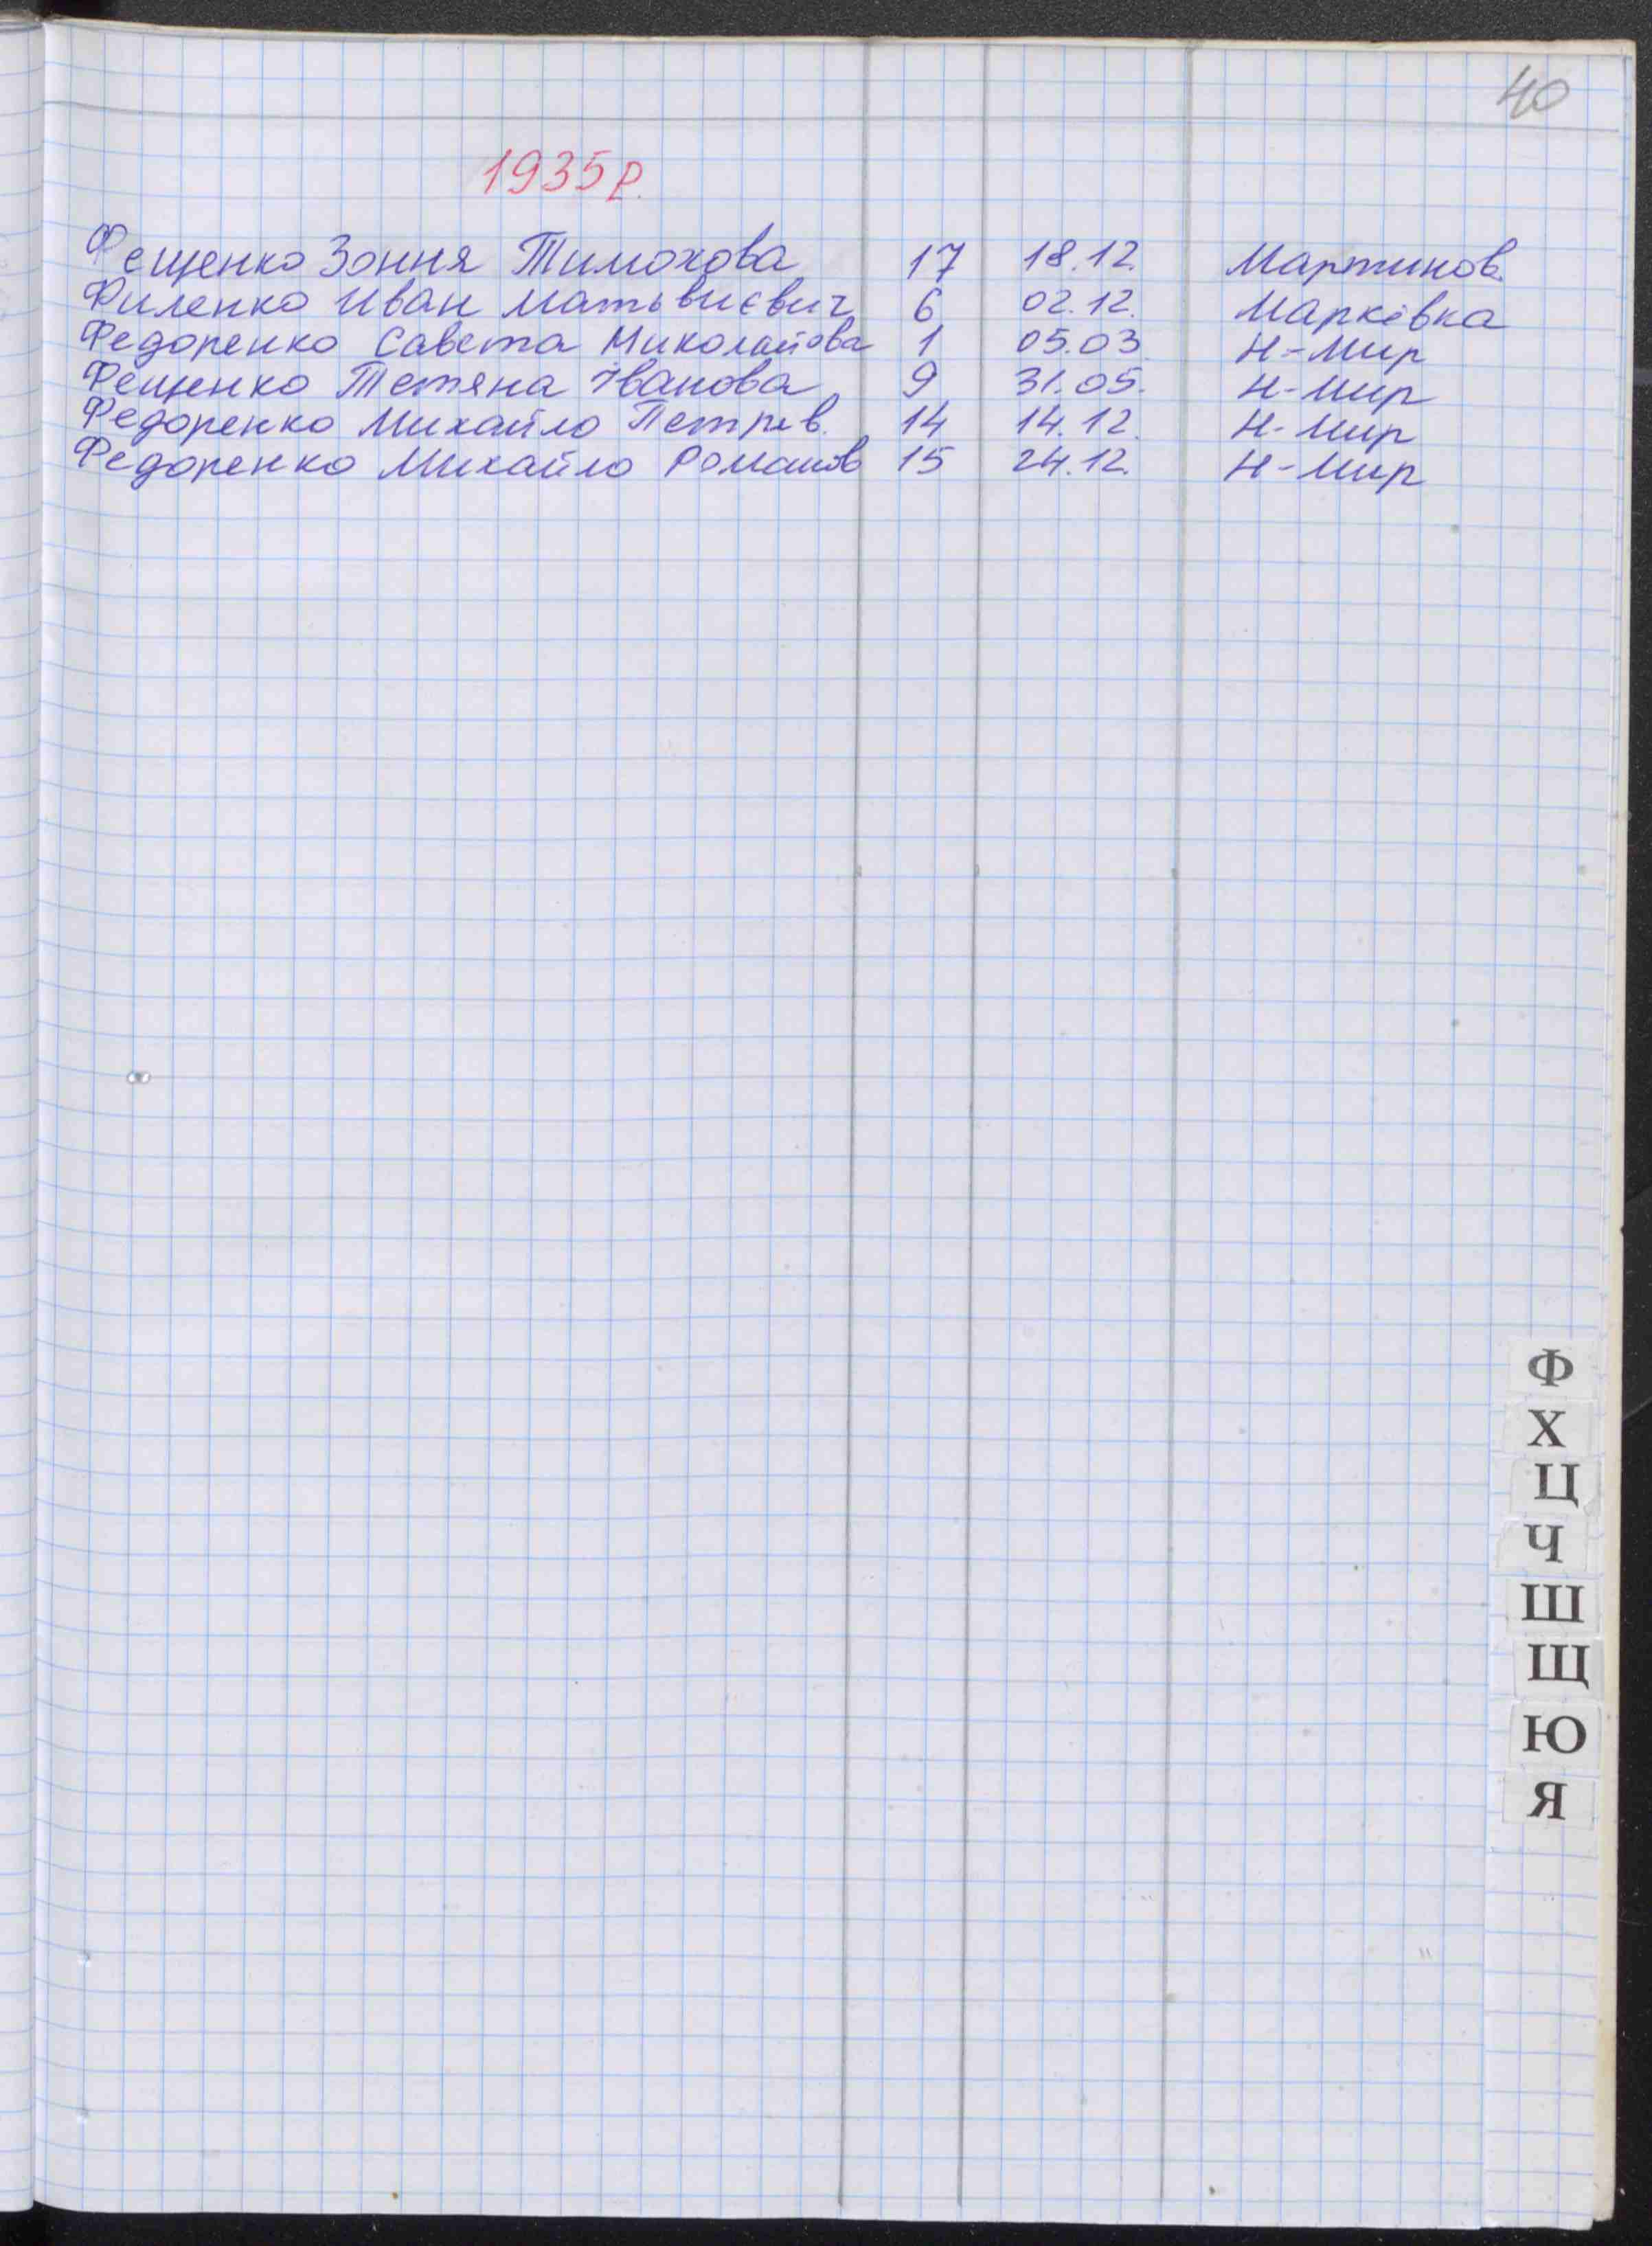 40
1935 р.
Фещенко Зоння Тимохова 17 18.12. Мартинов.
Филенко Иван Матьвиєвич 6 02.12. Марківка
Федоренко Савета Миколайова 1 05.03 Н-Мир
Фещенко Тетяна Іванова 9 31.05. Н-Мир
Федоренко Михайло Петров. 14 14.12. Н-Мир
Федоренко Михайло Романов 15 24.12. Н-Мир
Ф
Х
Ц
Ч
Ш
Щ
Ю
Я